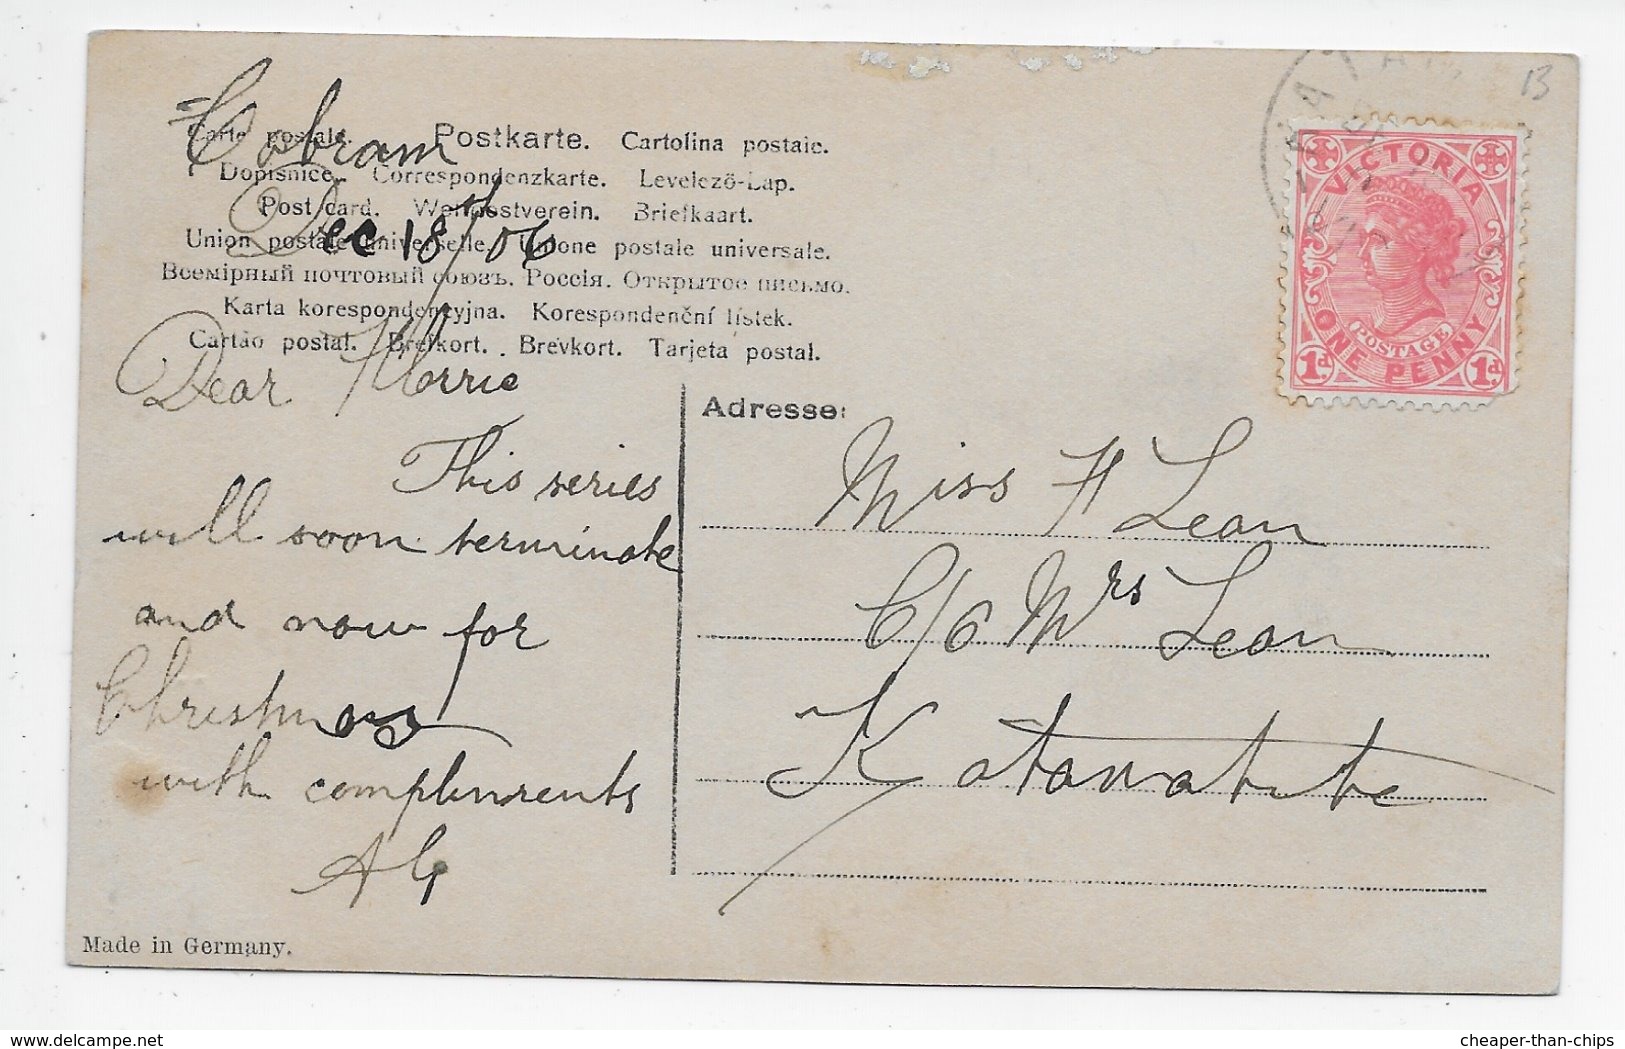 Cobram
Dec 18th/06
Carte postale. Postkarte. Cartolina postale.
Dopisnice. Correspondenzkarte. Levelező-Lap.
Post card. Weltpostverein. Briefkaart.
Union postale universelle. Unione postale universale.
Всемірный почтовый союзъ. Россія. Открытое письмо.
Karta korespondencyjna. Korespondenční lístek.
Cartão postal. Brefkort. Brevkort. Tarjeta postal.
Dear Florrie
This series
will soon terminate
and now for
Christmas
with compliments
AG
Made in Germany.
13
VICTORIA
POSTAGE
ONE PENNY
1d. 1d.
Adresse:
Miss F Lean
C/o Mrs Lean
Katawatite
cheaper-than-chips
delcampe.net